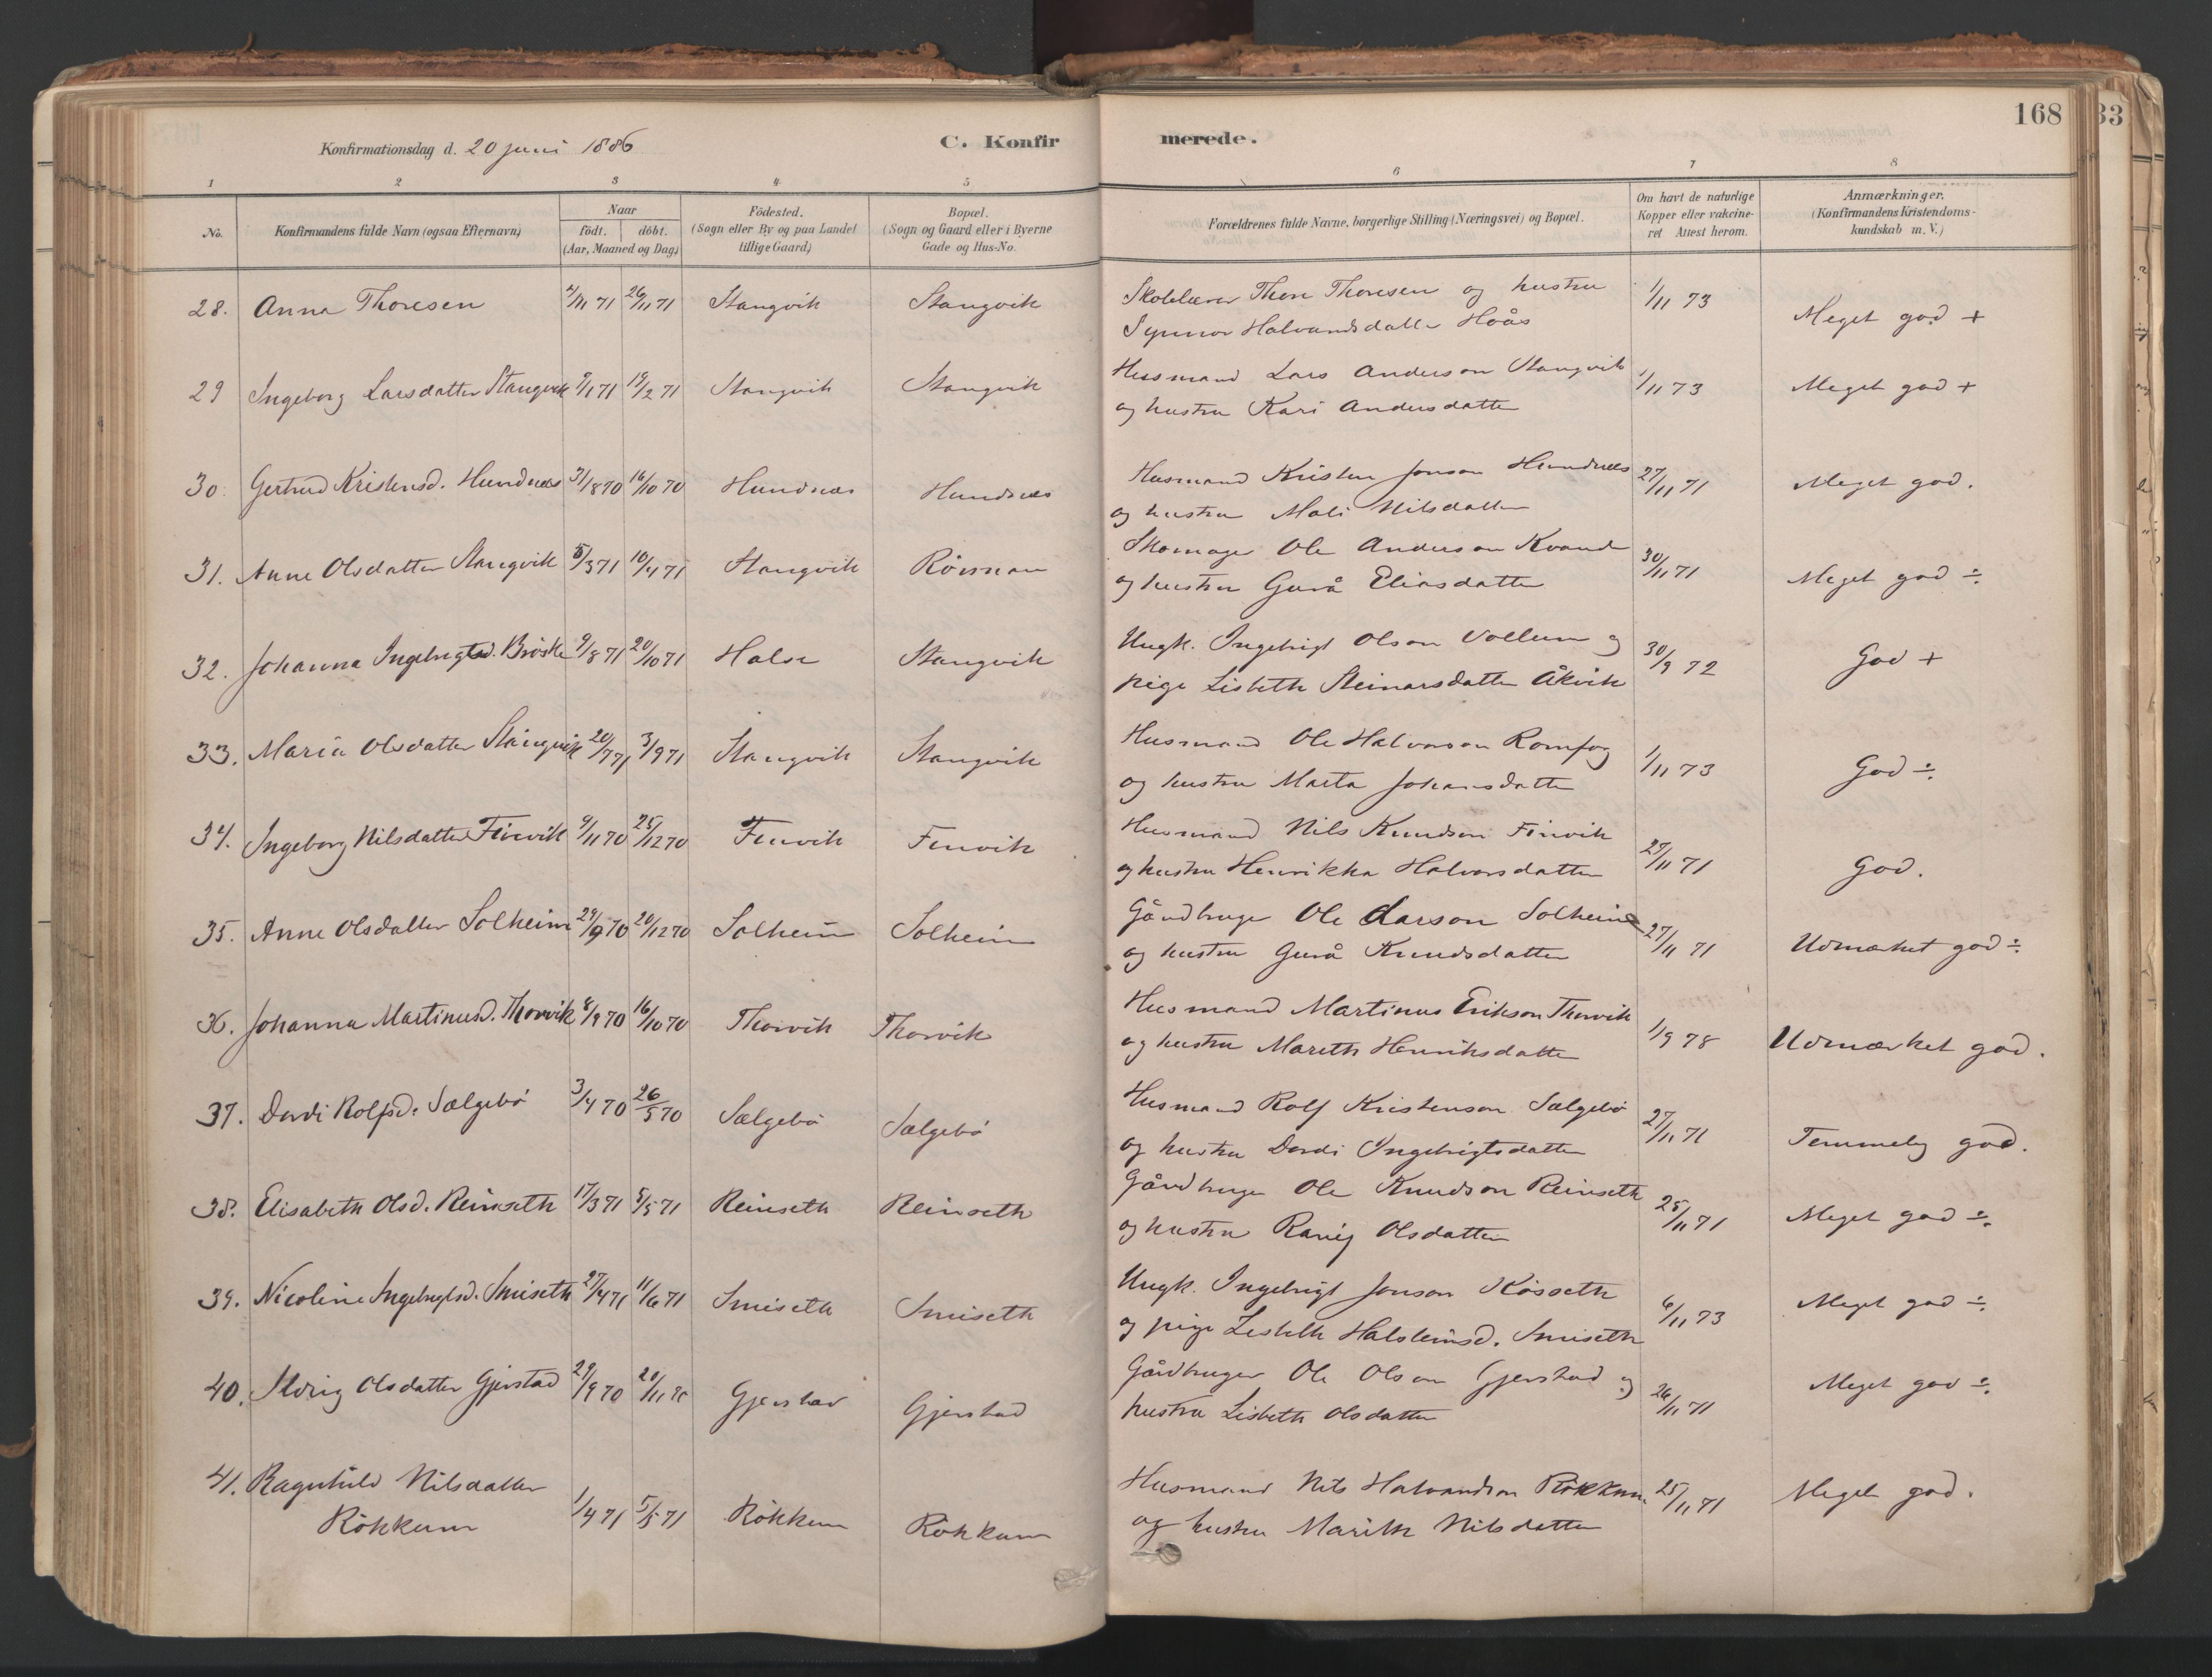 168
33
Konfirmationsdag d. 20 juni 1886
C. Konfirmerede.
1 2 3 4 5 6 7 8
No.
Konfirmandens fulde Navn (ogsaa Efternavn)
Naar
födt. döbt.
(Aar, Maaned og Dag)
Födested.
(Sogn eller By og paa Landet
tillige Gaard)
Bopæl.
(Sogn og Gaard eller i Byerne
Gade og Hus-No.
Forældrenes fulde Navne, borgerlige Stilling (Næringsvei) og Bopæl.
Om havt de naturlige
Kopper eller vakcine-
ret Attest herom.
Anmærkninger.
(Konfirmandens Kristendoms-
kundskab m. V.)
28. Anna Thoresen 26/11 71 Stangvik Stangvik Skolelærer Thore Thoresen og hustru 1/11 73 Meget god +
Synnøv Halvardsdatter Hoås
29 Ingeborg Larsdatter Stangvik 9/1 71 19/2 71 Stangvik Stangvik Husmand Lars Anderson Stangvik 1/11 73 Meget god +
og hustru Kari Andersdatter
30. Gertrud Kristensd. Hundnes 31/8 70 16/10 70 Hundnæs Hundnæs Husmand Kristen Jonson Hundnæs 27/11 71 Meget god.
og hustru Mali Nilsdatter
31. Anne Olsdatter Stangvik 5/3 71 10/4 71 Stangvik Skomager Ole Anderson Kvande 30/11 71 Meget god ÷
og hustru Gurå Eliasdatter
32. Johanna Ingebrigtsd. Brøske 9/8 71 20/10 71 Halse Stangvik Ungk. Ingebrigt Olson Vollum og 30/9 72 God +
pige Lisbeth Steinarsdatter Åkvik
33. Maria Olsdatter Stangvik 20/7 71 3/9 71 Stangvik Stangvik Husmand Ole Halvorson Romfog 1/11 73 God ÷
og hustru Marta Johansdatter
34. Ingeborg Nilsdatter Finvik 9/11 70 25/12 70 Finvik Finvik Husmand Nils Knudson Finvik 27/11 71 God.
og hustru Henrikka Halvorsdatter
35. Anne Olsdatter Solheim 29/9 70 20/12 70 Solheim Solheim Gårdbruger Ole Larson Solheim 27/11 71 Udmærket god ÷
og hustru Gurå Knudsdatter
36. Johanna Martinusd. Thorvik 8/9 70 16/10 70 Thorvik Thorvik Husmand Martinus Erikson Thorvik 1/9 78 Udmærket god.
og hustru Mareth Henriksdatter
37. Dordi Rolfsd. Sælgebö 3/4 70 26/5 70 Sælgebö Sælgebö Husmand Rolf Kristenson Sælgebö 27/11 71 Temmelig god.
og hustru Dordi Ingebrigtsdatter
38. Elisabeth Olsd. Reinseth 17/3 71 5/5 71 Reinseth Reinseth Gårdbruger Ole Knudson Reinseth 25/11 71 Meget god ÷
og hustru Olsdatter
39. Nicoline Ingebrigtsd. Smiseth 27/4 71 11/6 71 Smiseth Smiseth Ungk. Ingebrigt Jonson Kösseth 6/11 73 Meget god ÷
og pige Lisbeth Halsteinsd. Smiseth
40. Olsdatter Gjerstad 29/9 70 20/11 70 Gjerstad Gjerstad Gårdbruger Ole Olson Gjerstad og 26/11 71 Meget god ÷
hustru Lisbeth Olsdatter
41. Ragnhild Nilsdatter
Rökkum 1/4 71 5/5 71 Rökkum Rökkum Husmand Nils Halvardson Rökkum 25/11 71 Meget god.
og hustru Marith Nilsdatter